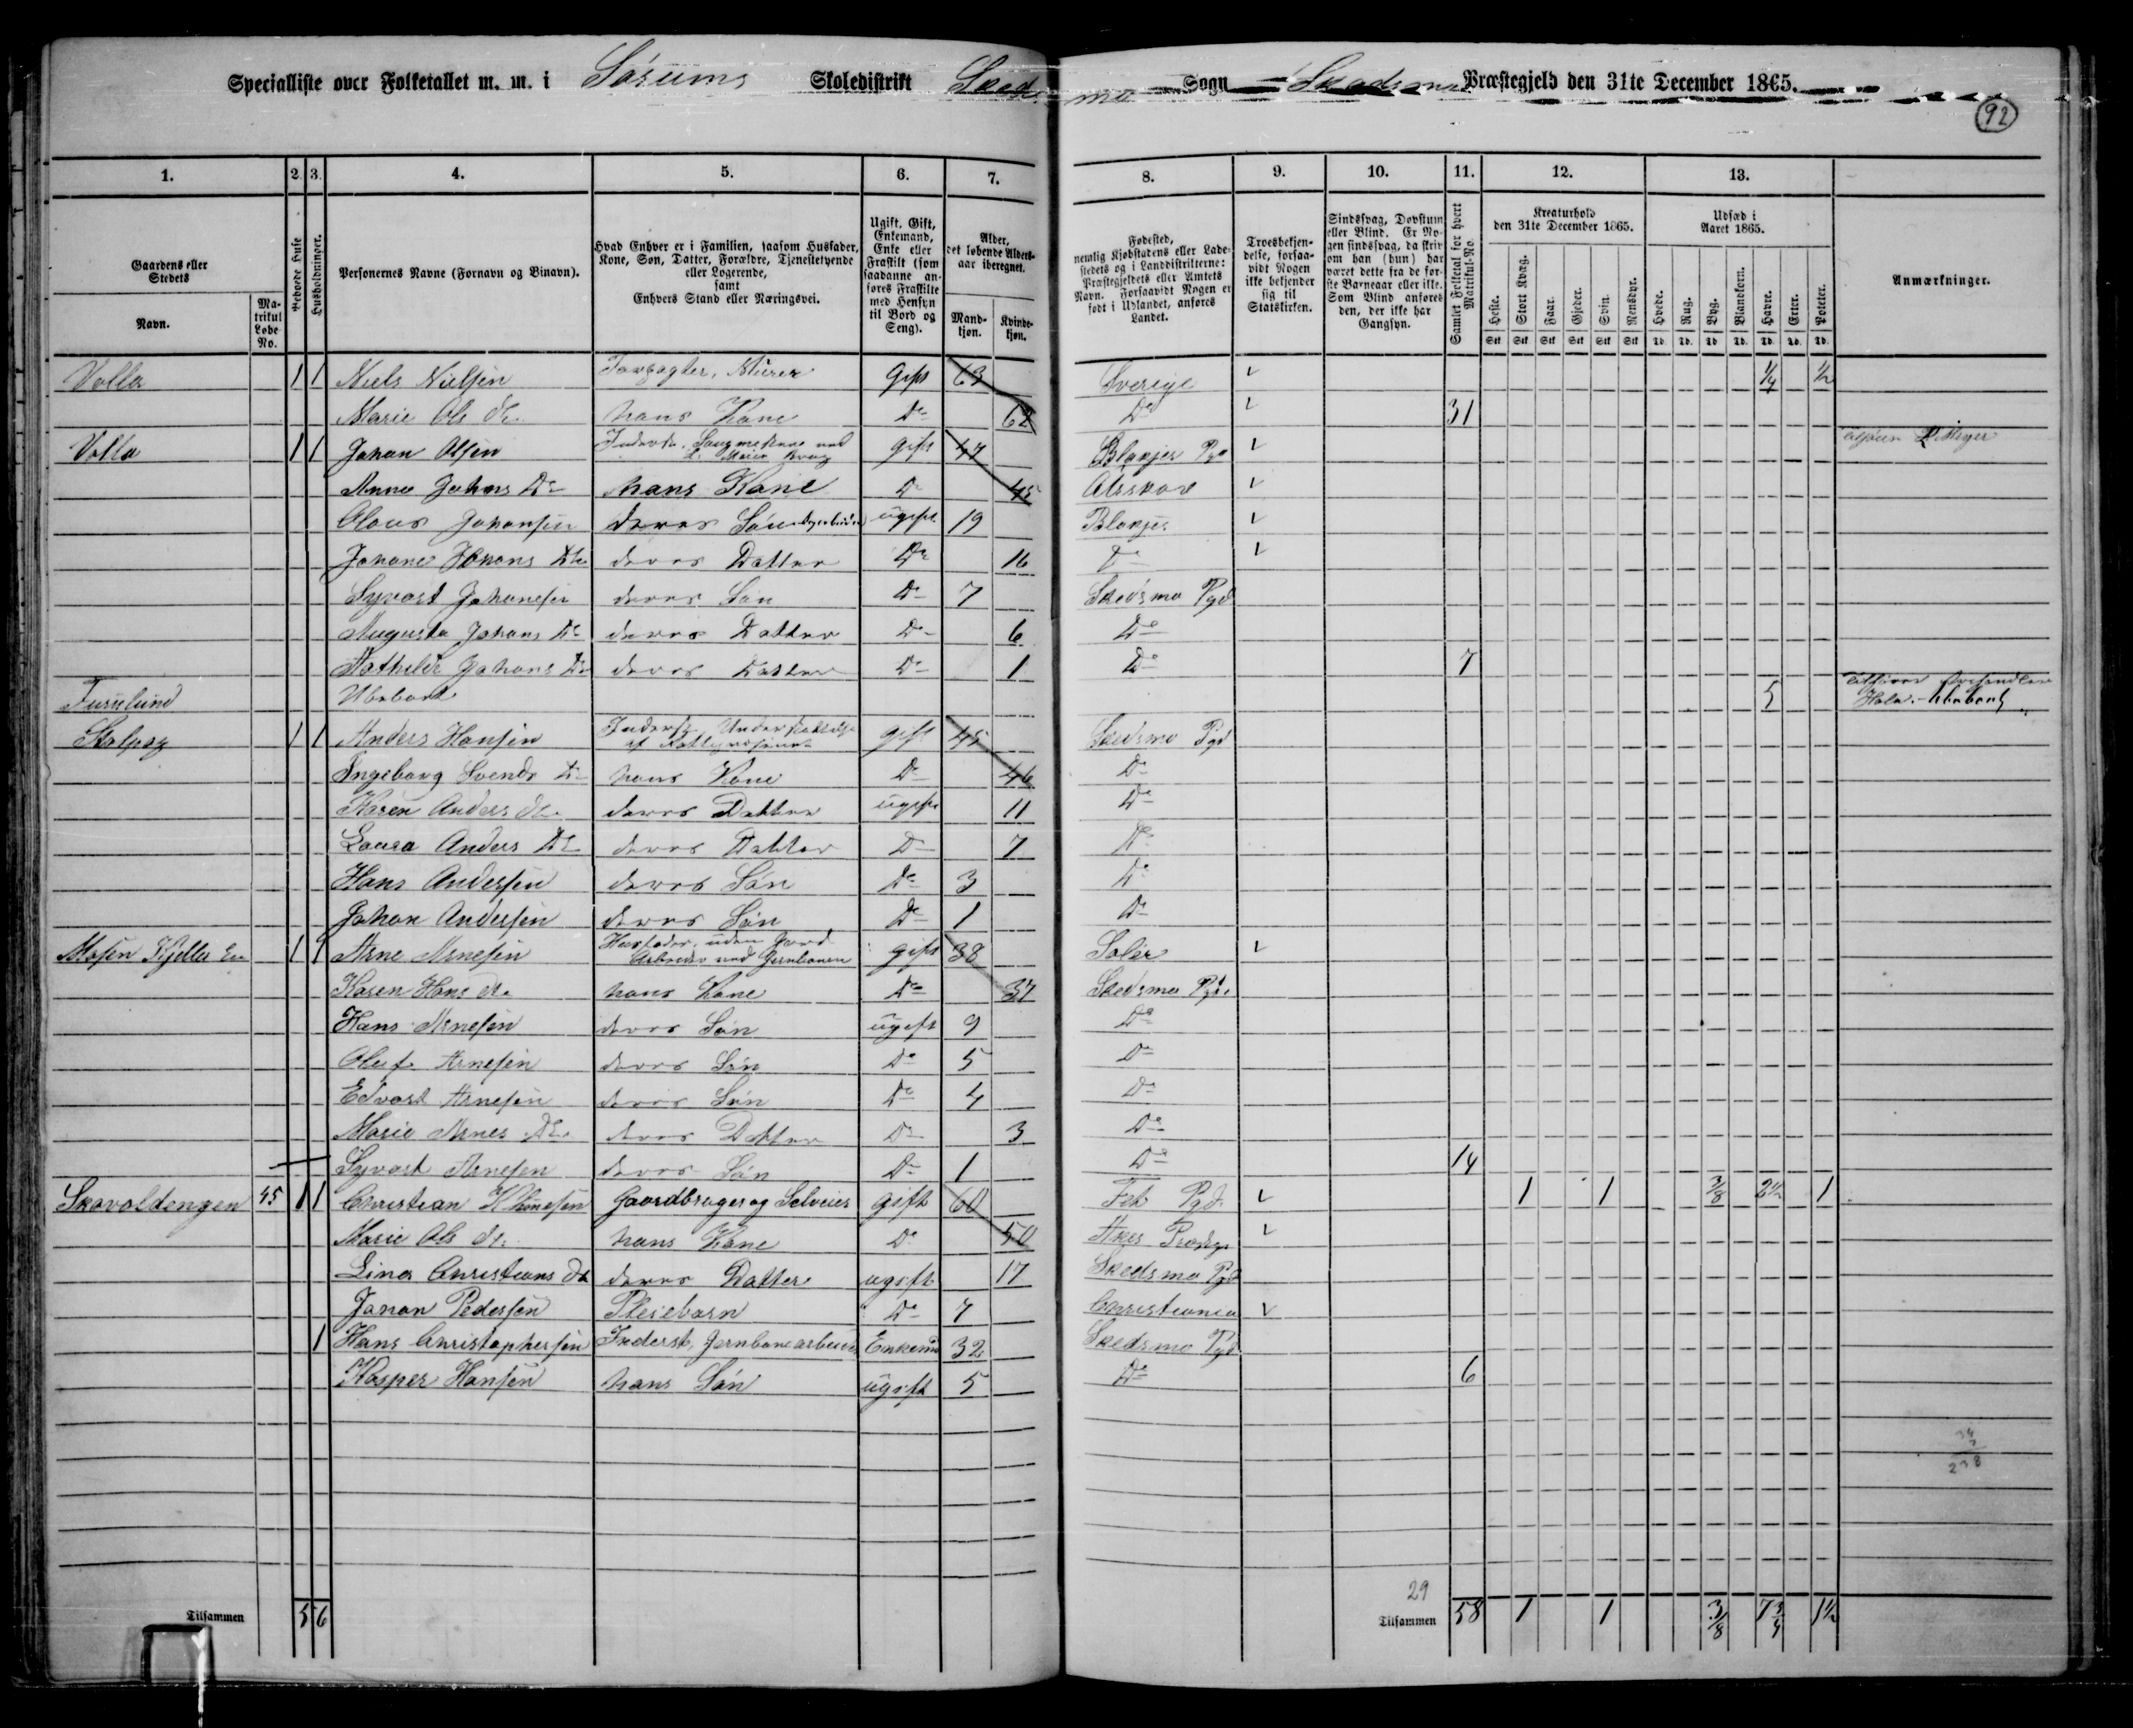 Specialliste over Folketallet m. m. i Sørums Skoledistrikt Skedsmo Sogn Skedsmo Præstegjeld den 31te December 1865.
92
1. 2. 3. 4. 5. 6. 7. 8. 9. 10. 11. 12. 13.
Gaardens eller Stedets
Navn.
Matrikul Løbe No.
Beboede Huse
Husholdninger.
Personernes Navne (Fornavn og Binavn).
Hvad Enhver er i Familien, saasom Husfader, Kone, Søn, Datter, Forældre, Tjenestetyende eller Logerende, samt Enhvers Stand eller Næringsvei.
Ugift, Gift, Enkemand, Enke eller Fraskilt (som saadanne anføres Fraskilte med Hensyn til Bord og Seng).
Alder, det løbende Aldersaar iberegnet.
Mandkjøn.
Kvindekjøn.
Fødested, nemlig Kjøbstadens eller Ladestedets og i Landdistrikterne: Præstegjeldets eller Amtets Navn. Forsaavidt Nogen er født i Udlandet, anføres Landet.
Troesbekjendelse, forsaavidt Nogen ikke bekjender sig til Statskirken.
Sindssvag, Døvstum eller Blind. Er Nogen sindssvag, da skrives om han (hun) har været dette fra de første Barneaar eller ikke. Som Blind anføres den, der ikke har Gangsyn.
Samlet Folketal for hvert Matrikul-No.
Kreaturhold den 31te December 1865.
Heste. Stort Kvæg. Faar. Gjeder. Svin. Rensdyr.
Udsæd i Aaret 1865.
Hvede. Rug. Byg. Blandkorn. Havre. Erter. Poteter.
Stk Stk Stk Stk Stk Stk Td. Td. Td. Td. Td. Td. Td.
Anmærkninger.
Volla 1 1 Niels Nielsen Murer Gift 63 Sverige 1/4 1/2
Marie Ols Dtr. hans Kone Do 62 Do 31
Volla 1 1 Johan Olsen gift 47 Blakjer Pgd
Anna Johans Dr hans Kone Do 45
Olaus Johansen deres Søn ugift 19 Blakjer
Johane Johans Dtr deres Datter Do 16 Do
Syvart Johansen deres Søn Do 7 Skedsmo Pgd
Augusta Johans Dr deres Datter Do 6 Do
Mathilde Johans Dr deres Datter Do 1 Do 7
Furulund Ubeboet 5 Ubeboet
1 1 Anders Hansen Inderst, gift 45 Skedsmo Pgd
Ingeborg Svends Dr hans Kone Do 46 Do
Karen Anders Dtr. deres Datter ugift 11 Do
Laura Anders Dtr deres Datter Do 7 Do
Hans Andersen deres Søn Do 3 Do
Johan Andersen deres Søn Do 1 Do
Mosen Kjeller Eie 1 1 Arne Arnesen Husfader, uden Jord Arbeider ved Jernbanen gift 38 Solør
Karen Hans Dtr. hans Kone Do 37 Skedsmo Pgd.
Hans Arnesen deres Søn ugift 9 Do
Oluf Arnesen deres Søn Do 5 Do
Edvart Arnesen deres Søn Do 4 Do
Marie Arnes Dtr. deres Datter Do 3 Do
Syvart Arnesen deres Søn Do 1 Do 14
Skovoldengen 45 1 1 Christian Gaardbruger og Selveier gift 60 Fet Pgd. 1 1 3/8 2 1/2 1
Marie Ols Dtr. hans Kone Do 50 Akers
Lina Christians Dtr deres Datter ugift 17 Skedsmo Pgd
Johan Pedersen Pleiebarn Do 7 Christiania
1 Hans Christophersen Inderst, Jernbanearbeider Enkemd 32 Skedsmo Pgd
Kasper Hansen hans Søn ugift 5 Do 6
34
7
238
29
Tilsammen 5 6
Tilsammen 58 1 1 3/8 7 3/4 1 1/2